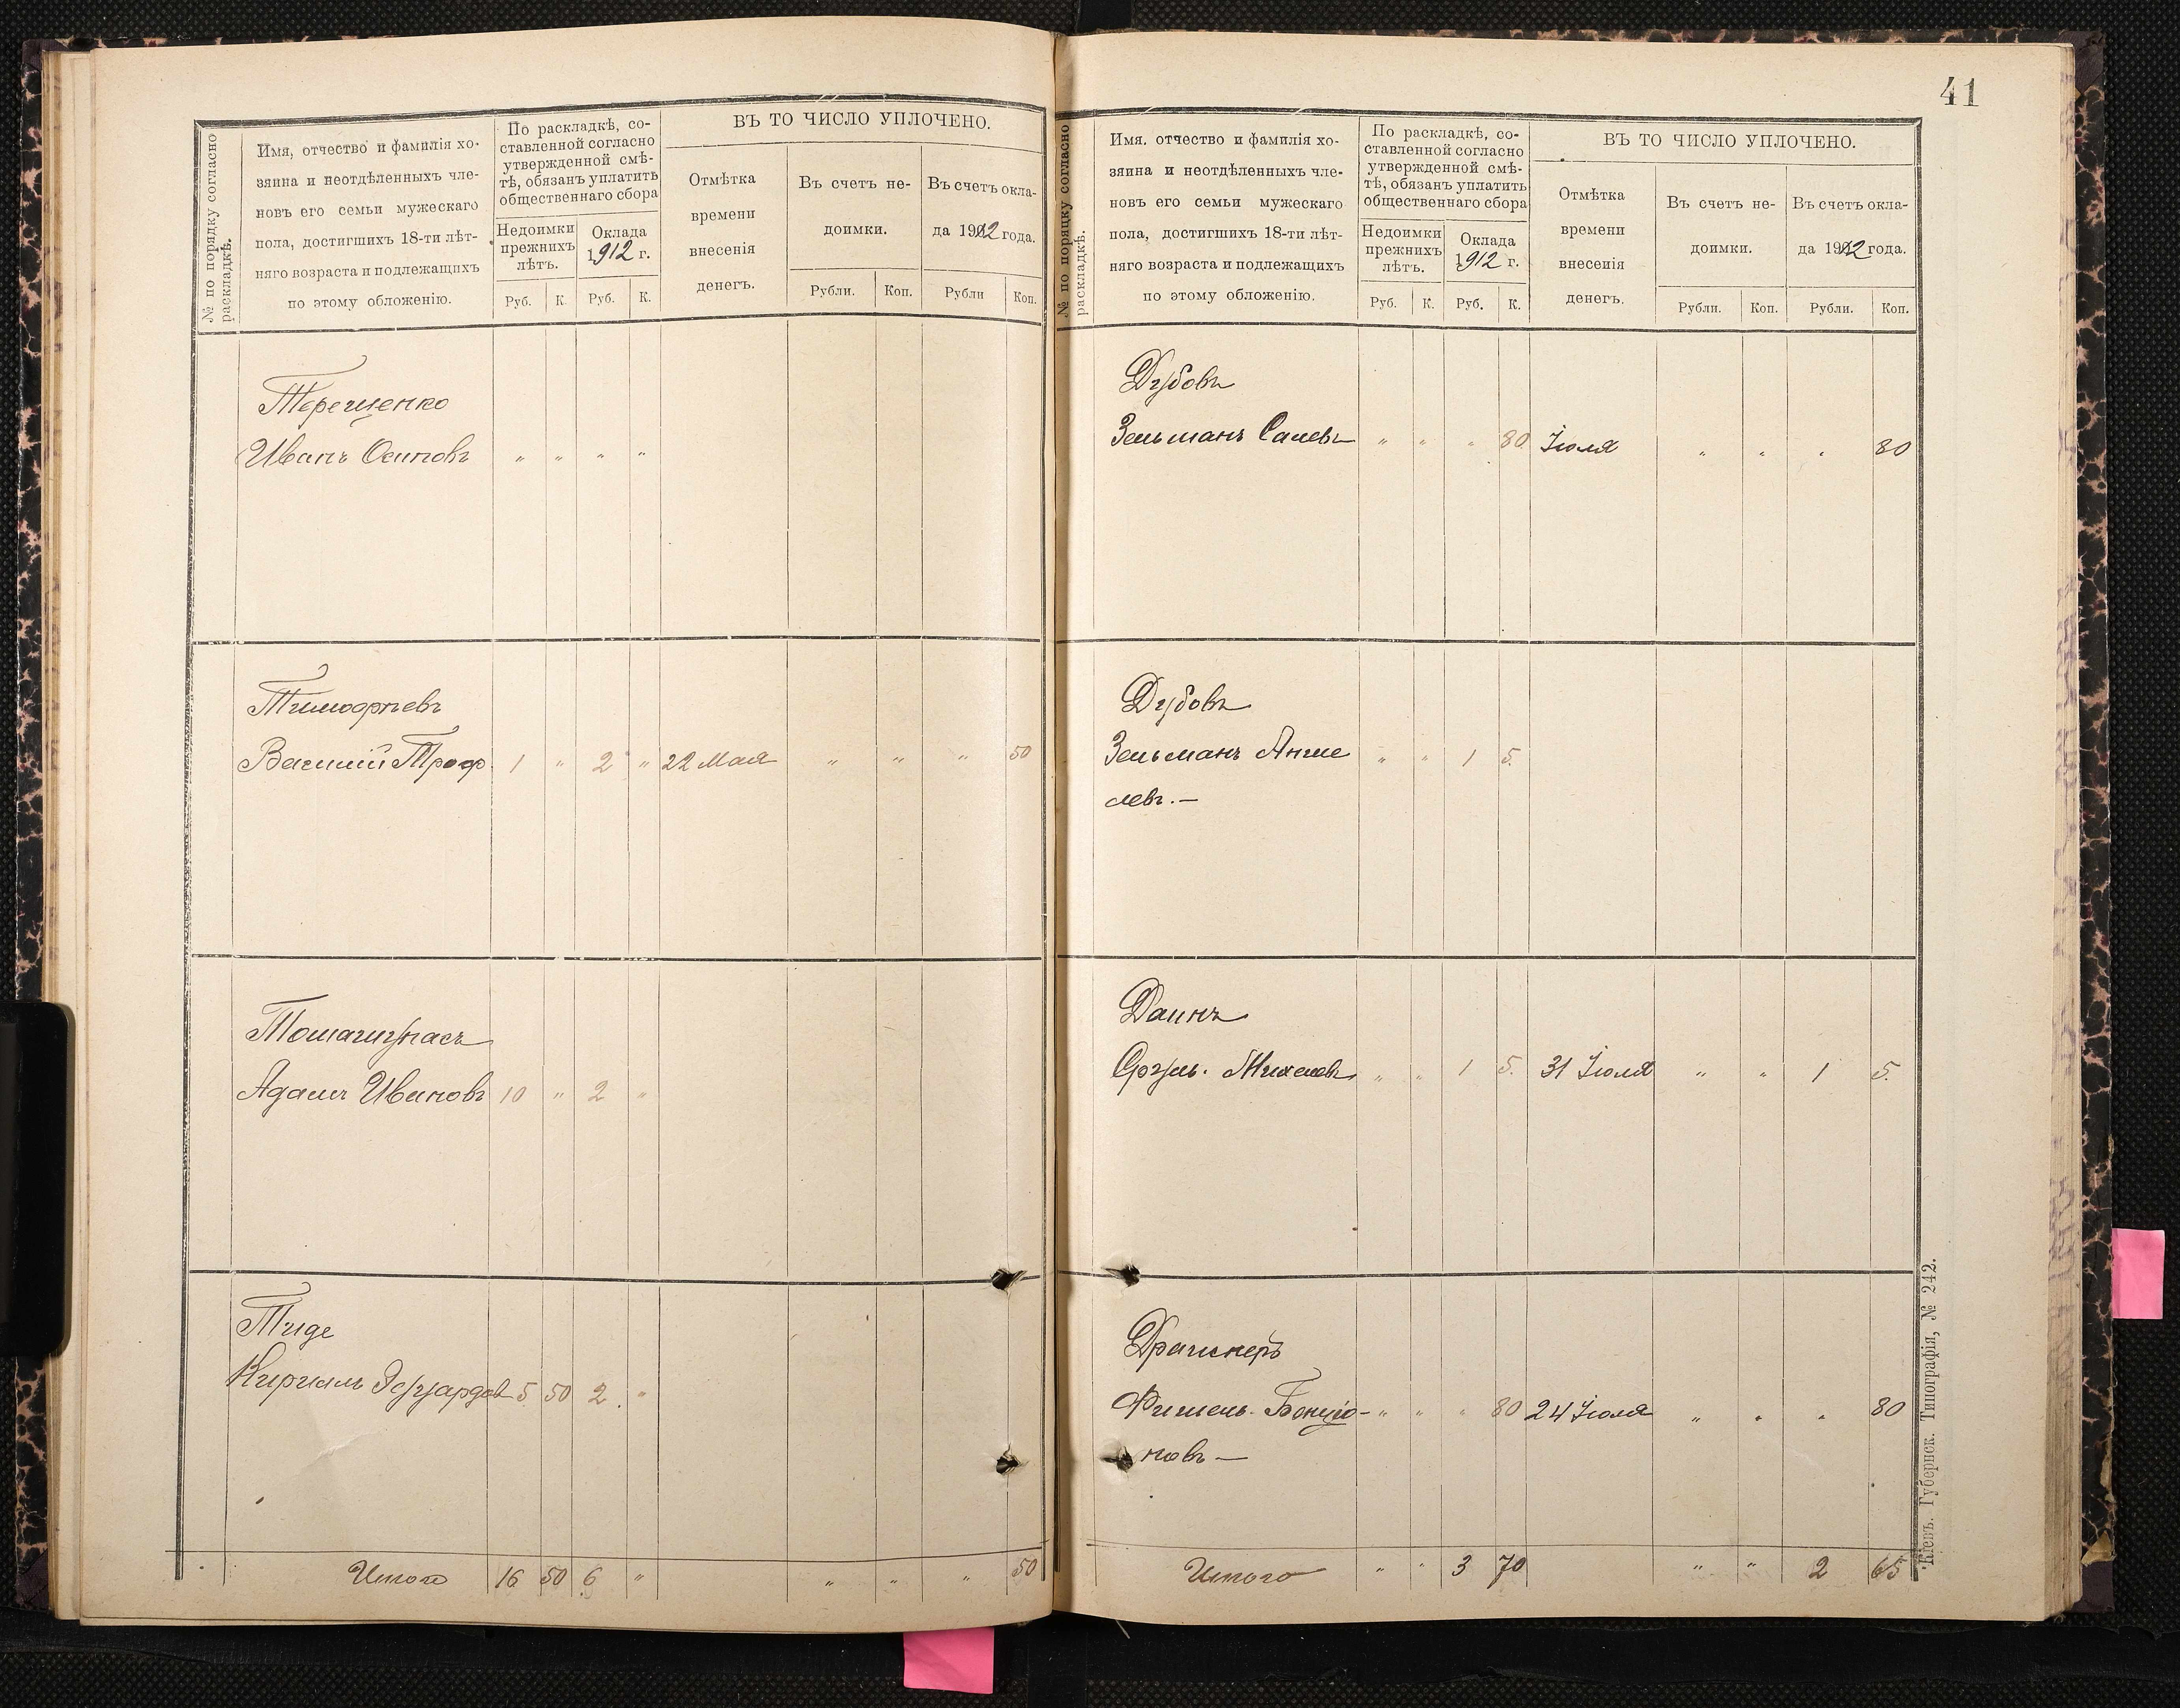 41
ВЪ ТО ЧИСЛО УПЛОЧЕНО.
№ по порядку согласно раскладкѣ.
Имя, отчество и фамилія хо-
зяина и неотдѣленныхъ чле-
новъ его семьи мужескаго
пола, достигшихъ 18-ти лѣт-
няго возраста и подлежащихъ
по этому обложенію.
По раскладкѣ, со-
ставленной согласно
утвержденной смѣ-
тѣ, обязанъ уплатить
общественнаго сбора
Недоимки
прежнихъ
лѣтъ.
Оклада
1912 г.
Отмѣтка
времени
внесенія
денегъ.
Въ счетъ не-
доимки.
Въ счетъ окла-
да 1912 года.
Руб. К. Руб. К. Рубли. Коп. Рубли Коп.
Терещенко
Иванъ Осиповъ " " " "
Тимофѣевъ
Василій Троф. 1 " 2 " 22 Мая " " " 50
Адамъ Ивановъ 10 " 2 "
Тиде
Эдуардов 5 50 2 "
Итого 16 50 6 " " " " 50
ВЪ ТО ЧИСЛО УПЛОЧЕНО.
№ по порядку согласно раскладкѣ.
Имя. отчество и фамилія хо-
зяина и неотдѣленныхъ чле-
новъ его семьи мужескаго
пола, достигшихъ 18-ти лѣт-
няго возраста и подлежащихъ
по этому обложенію.
По раскладкѣ, со-
ставленной согласно
утвержденной смѣ-
тѣ, обязанъ уплатить
общественнаго сбора
Недоимки
прежнихъ
лѣтъ.
Оклада
1912 г.
Отмѣтка
времени
внесенія
денегъ.
Въ счетъ не-
доимки.
Въ счетъ окла-
да 1912 года.
Руб. К. Руб. К. Рубли. Коп. Рубли. Коп.
Дубовъ
Зельманъ " " " 80 Іюля " " " 80
Дубовъ
Зельманъ Анше " " 1 5.
левъ.—
Даинъ
Михелевъ " " 1 5. 31 Іюля " " 1 5.
Фишель " " " 80 24 Іюля " " " 80
новъ —
Итого " " 3 70 " " 2 65
Кіевъ. Губернск. Типографія, № 242.